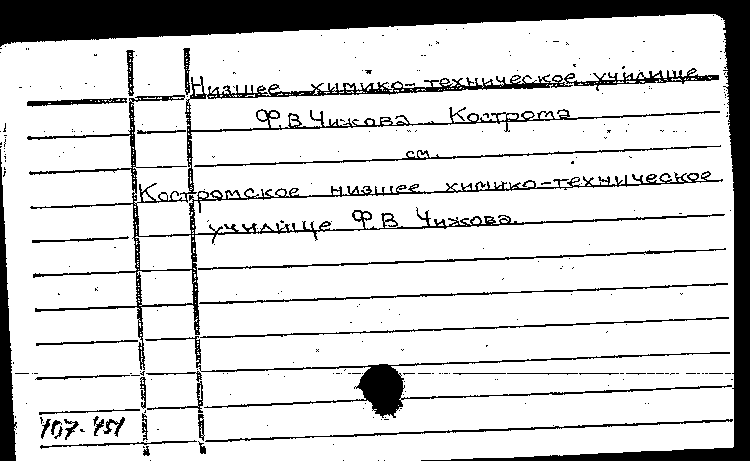 Низшее химико-техническое училище
Ф.В Чижова. Кострома
см.
Костромское низшее химико-техническое
училище Ф.В Чижова.
107-451